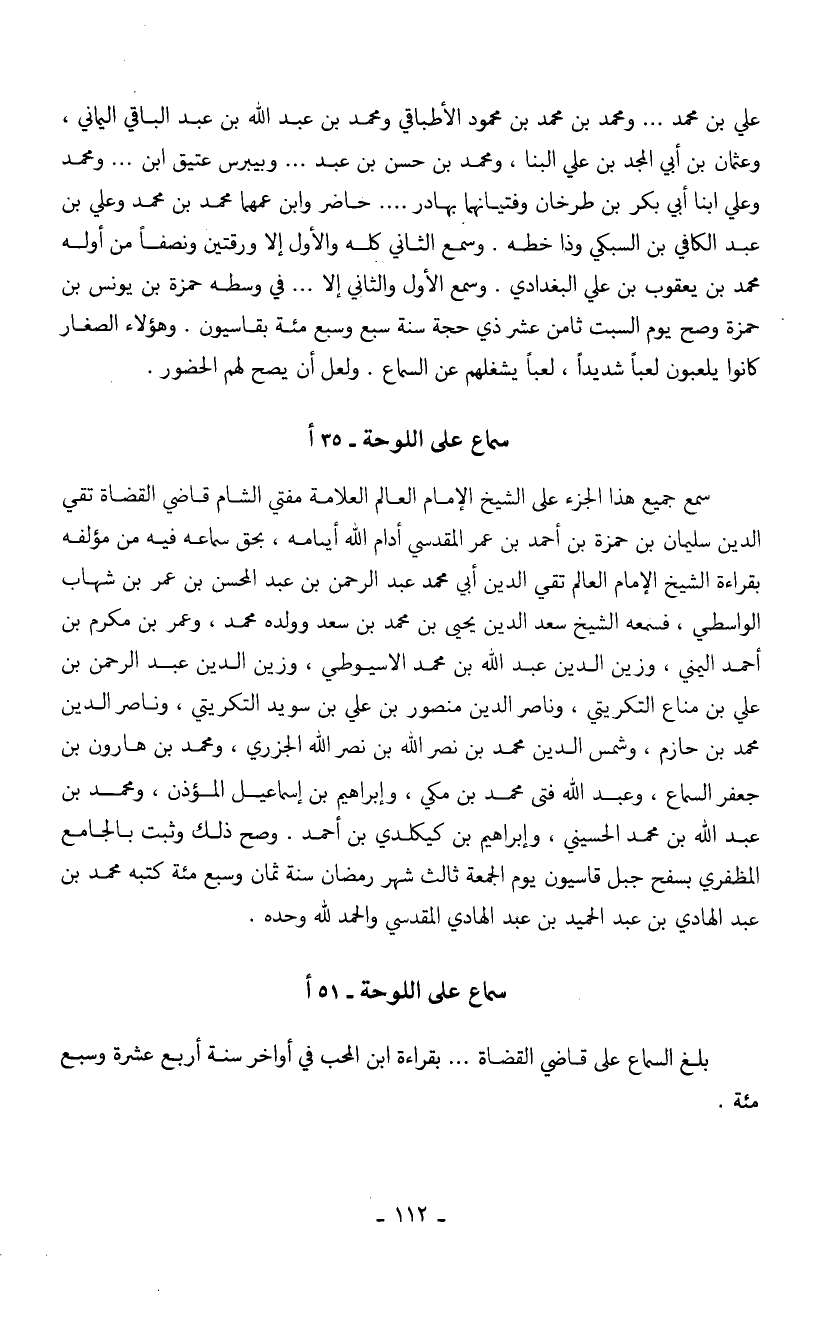 علي بن محمد ... ومحمد بن محمد بن محمود الأطباقي ومحمد بن عبد الله بن عبد الباقي اليماني ،
وعثمان بن أبي المجد بن علي البنا ، ومحمد بن حسن بن عبد ... وبيبرس عتيق ابن ... ومحمد
وعلي ابنا أبي بكر بن طرخان وفتيانهما بهادر .... حاضر وابن عمهما محمد بن محمد وعلي بن
عبد الكافي بن السبكي وذا خطه . وسمع الثاني كله والأول إلا ورقتين ونصفاً من أوله
محمد بن يعقوب بن علي البغدادي . وسمع الأول والثاني إلا ... في وسطه حمزة بن يونس بن
حمزة وصح يوم السبت ثامن عشر ذي حجة سنة سبع وسبع مئة بقاسيون . وهؤلاء الصغار
كانوا يلعبون لعباً شديداً ، لعباً يشغلهم عن السماع . ولعل أن يصح لهم الحضور .
سماع على اللوحة ـ ٣٥ أ
سمع جميع هذا الجزء على الشيخ الإمام العالم العلامة مفتي الشام قاضي القضاة تقي
الدين سليمان بن حمزة بن أحمد بن عمر المقدسي أدام الله أيامه ، بحق سماعه فيه من مؤلفه
بقراءة الشيخ الإمام العالم تقي الدين أبي محمد عبد الرحمن بن عبد المحسن بن عمر بن شهاب
الواسطي ، فسمعه الشيخ سعد الدين يحيى بن محمد بن سعد وولده محمد ، وعمر بن مكرم بن
أحمد اليمني ، وزين الدين عبد الله بن محمد الاسيوطي ، وزين الدين عبد الرحمن بن
علي بن مناع التكريتي ، وناصر الدين منصور بن علي بن سويد التكريتي ، وناصر الدين
محمد بن حازم ، وشمس الدين محمد بن نصر الله بن نصر الله الجزري ، ومحمد بن هارون بن
جعفر السماع ، وعبد الله فتى محمد بن مكي ، وإبراهيم بن إسماعيل المؤذن ، ومحمد بن
عبد الله بن محمد الحسيني ، وإبراهيم بن كيكلدي بن أحمد . وصح ذلك وثبت بالجامع
المظفري بسفح جبل قاسيون يوم الجمعة ثالث شهر رمضان سنة ثمان وسبع مئة كتبه محمد بن
عبد الهادي بن عبد الحميد بن عبد الهادي المقدسي والحمد لله وحده .
سماع على اللوحة ـ ٥١ أ
بلغ السماع على قاضي القضاة ... بقراءة ابن المحب في أواخر سنة أربع عشرة وسبع
مئة .
ـ ١١٢ ـ